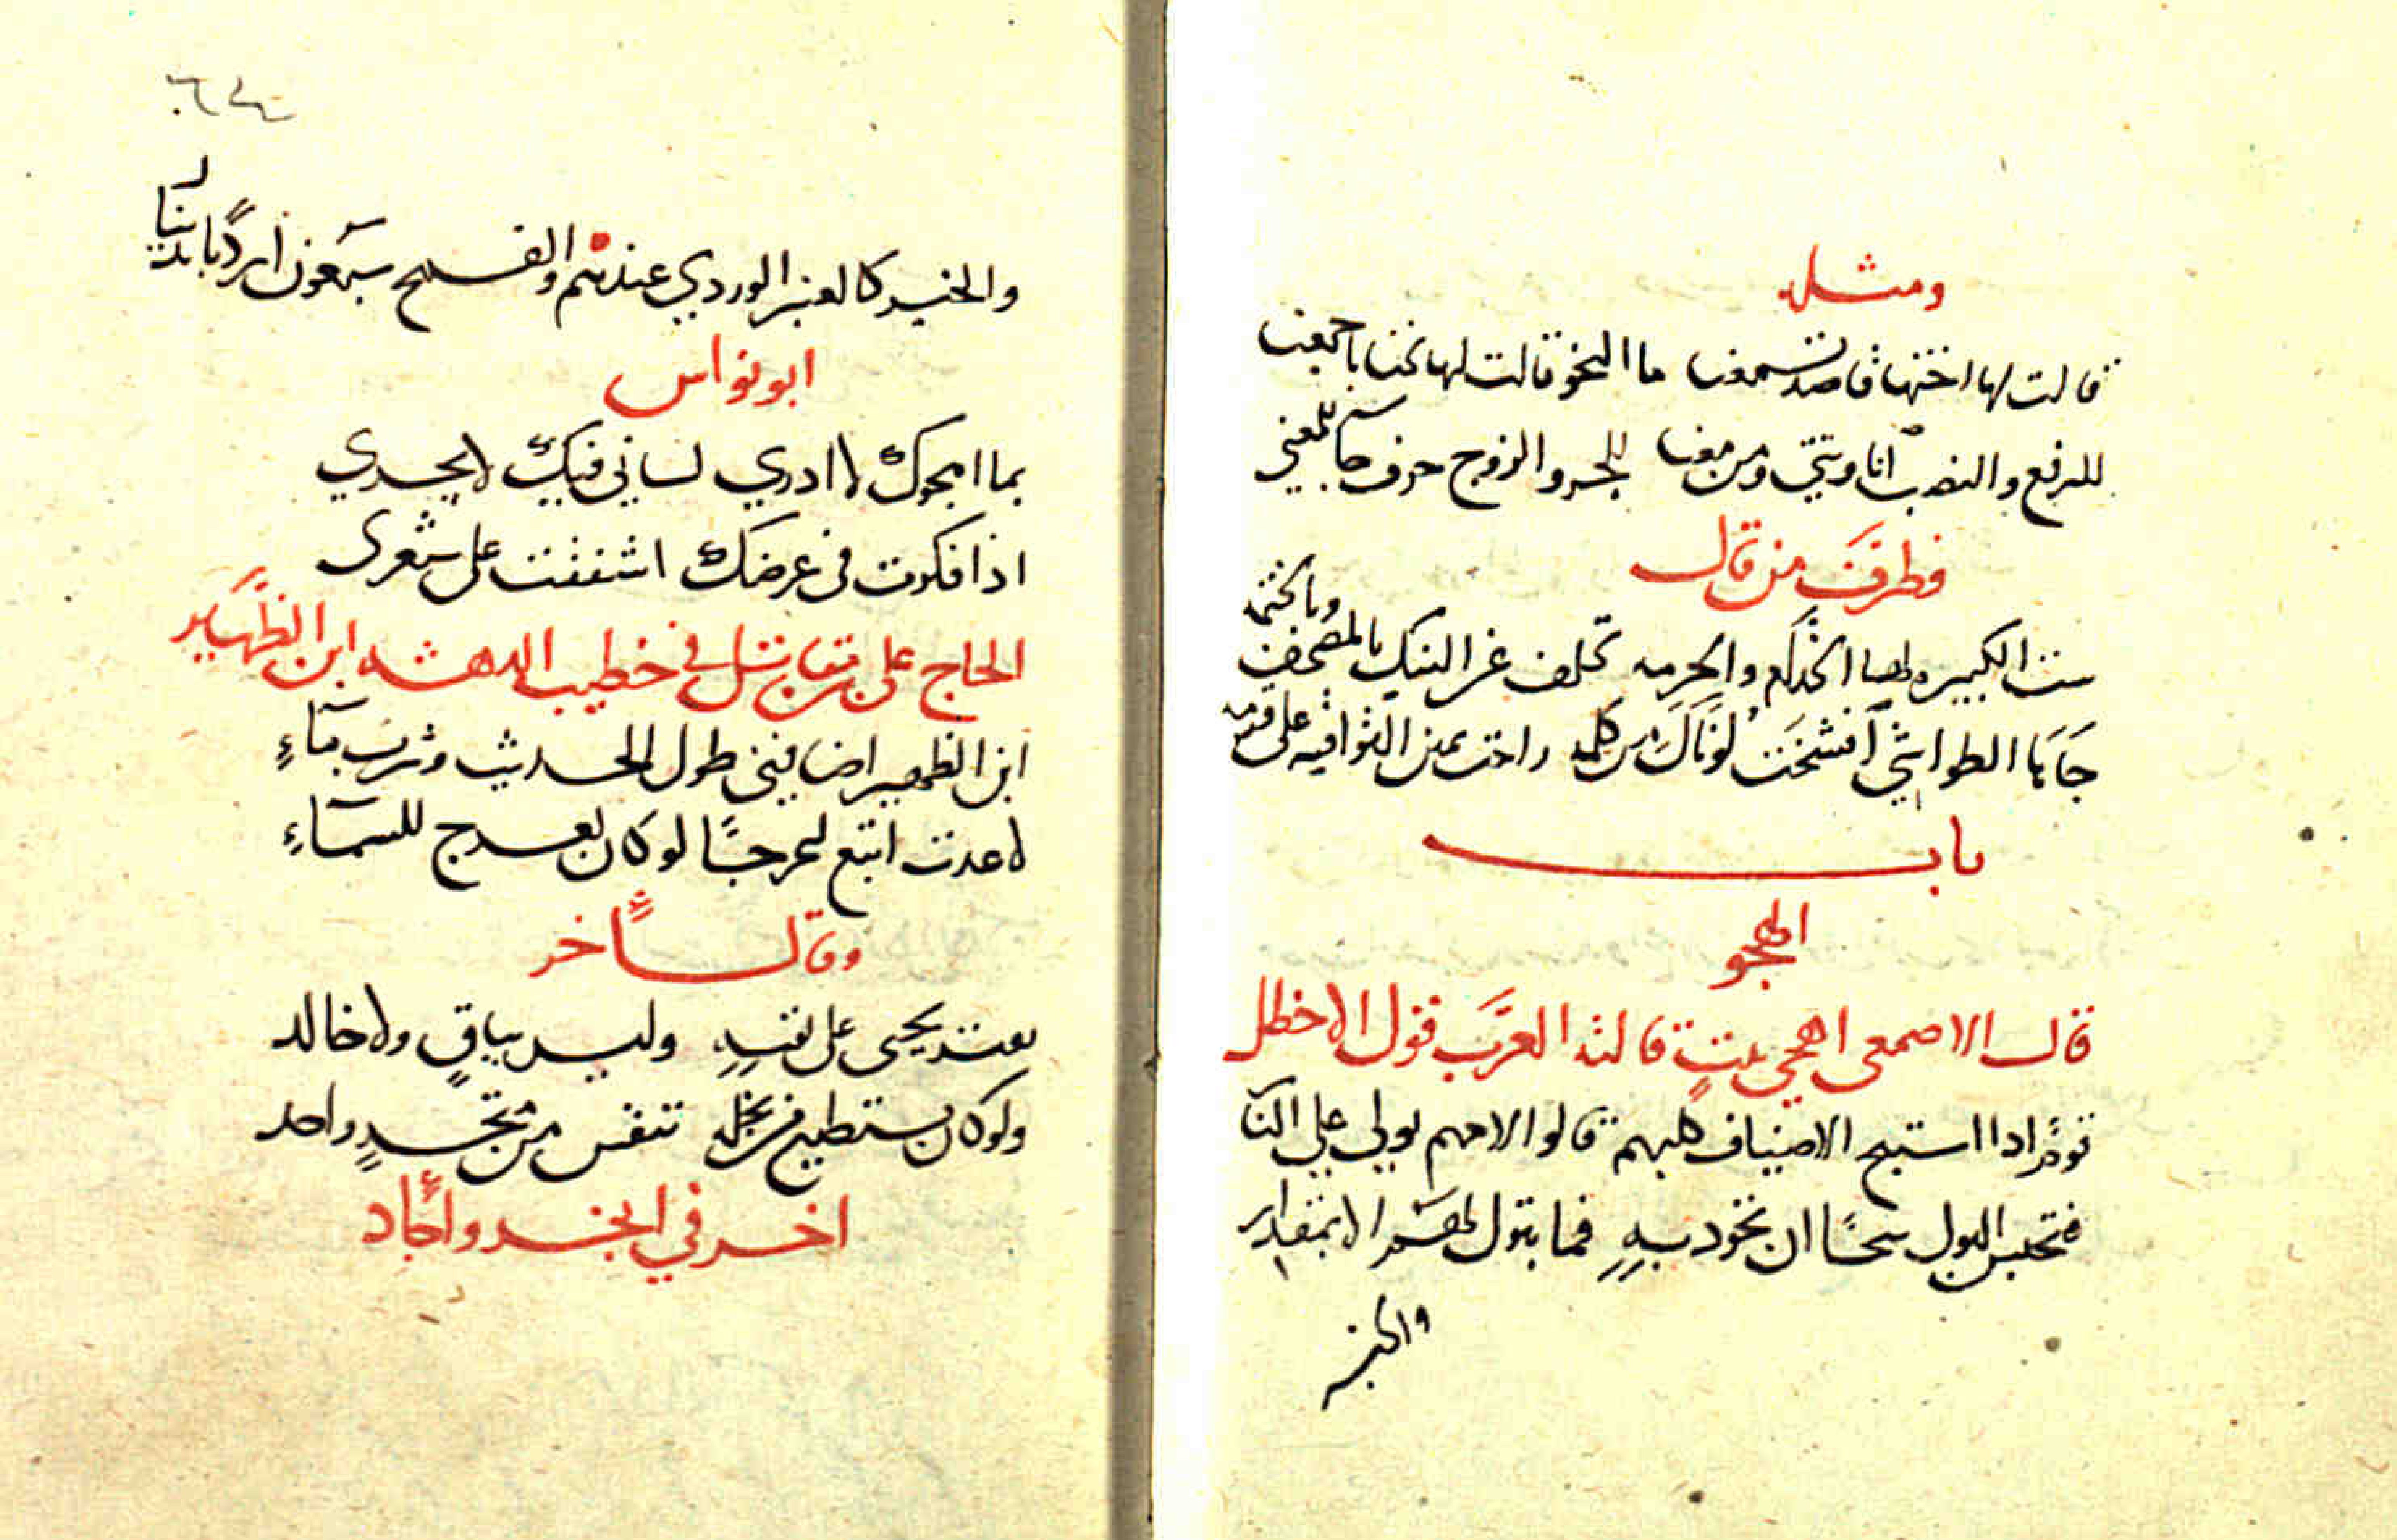 ومثله
قالت لها اختها قاصد تسمعنا ما النحو قالت لها نحنا باجمعنا
للرفع والنصب انا وستي ومن معنا للجر والزوج حرف جا لمعني
فطرف من قال
ست الكبيره لها الخدام والحرمه تحلف عن النيك بالمصحف وبالختمه
جايا الطواشي
باب
الهجو
قال الاصمعي اهجي بيتٍ قالته العرب قول الاخطل
قومٌ اذا استنبح الاضياف كلبهم قالوا لامهم بولي على النا
فتحبس البول شحًا ان تجود به فما تبول لهم الا بمقدار
والخبز
والخبز كالعنبر الوردي عندهم والقمح سبعون اردبًا بدينار
ابو نواس
بما اهجوك لا ادري لساني فيك لا يجدي
اذا فكرت في عرضك اشفقت على شعري
الحاج علي بن مقاتل في خطيب الدهشه ابن الظهير
ابن الظهير اضافني طول الحديث وشرب ماءٍ
لا عدت اتبع اعرجًا لو كان يعرج للسماءِ
وقال آخر
يقتر يحيى على نفسه وليس بباقٍ ولا خالد
ولو كان يستطيع من بخله تنفس من منخرٍ واحد
اخر في ابخر واجاد